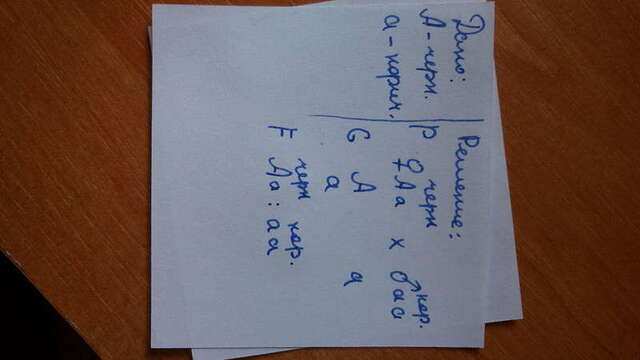 Дано:
А - черн.
а - корич.
Решение:
черн кор.
P ♀Аа х ♂аа
G А а
а
черн кор.
F Аа : аа